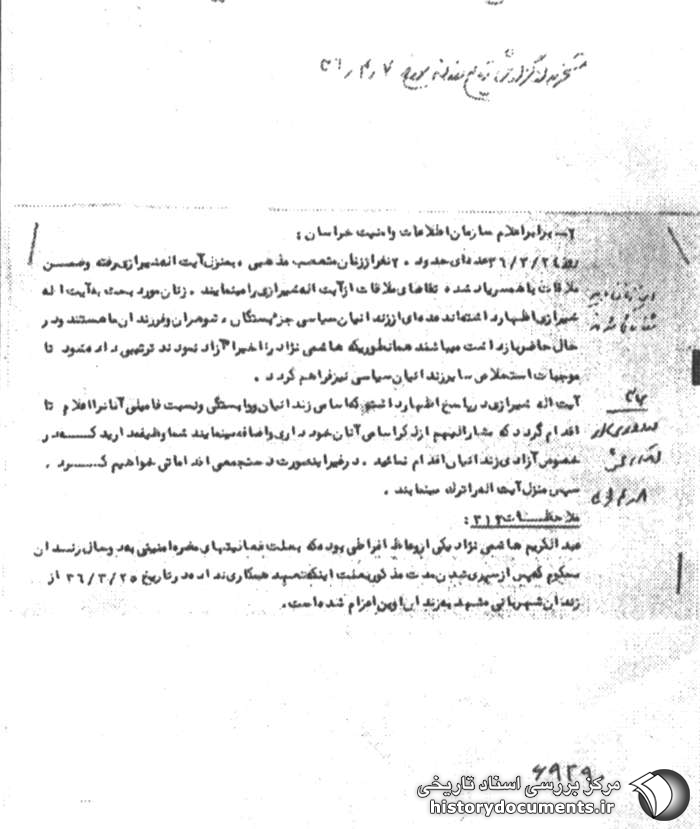 ۳۶/۴/۷
۲- برابر اعلام سازمان اطلاعات و امنیت خراسان :
روز ۳۶/۳/۲۴ عده‌ای حدود ۲۰ نفر از زنان متعصب مذهبی ، بمنزل آیت اله شیرازی رفته و ضمن
ملاقات با همسر یاد شده تقاضای ملاقات از آیت اله شیرازی را مینمایند . زنان مورد بحث به آیت اله
شیرازی اظهار داشته‌اند عده‌ای از زندانیان سیاسی جز بستگان ، شوهران و فرزندان ما هستند و در
حال حاضر بازداشت میباشند همانطوریکه هاشمی نژاد را اخیرا آزاد نمودند ترتیبی داده شود تا
موجبات استخلاص سایر زندانیان سیاسی نیز فراهم گردد .
آیت اله شیرازی در پاسخ اظهار داشته که اسامی زندانیان و وابستگی و نسبت فامیلی آنانرا اعلام تا
اقدام گردد که مشارالیهم از ذکر اسامی آنان خودداری و اضافه مینمایند شما وظیفه دارید که در
خصوص آزادی زندانیان اقدام نمائید . در غیر اینصورت دستجمعی اقداماتی خواهیم کرد .
سپس منزل آیت اله را ترک مینمایند .
ملاحظات ۳۱۲ :
عبدالکریم هاشمی نژاد یکی از وعاظ افراطی بوده که بعلت فعالیتهای مضره امنیتی به دو سال زندان
محکوم که پس از سپری شدن مدت مذکور بعلت اینکه تعهد همکاری نداده در تاریخ ۳۶/۳/۲۵ از
زندان شهربانی مشهد به زندان اوین اعزام شده است.
مرکز بررسی اسناد تاریخی
historydocuments.ir